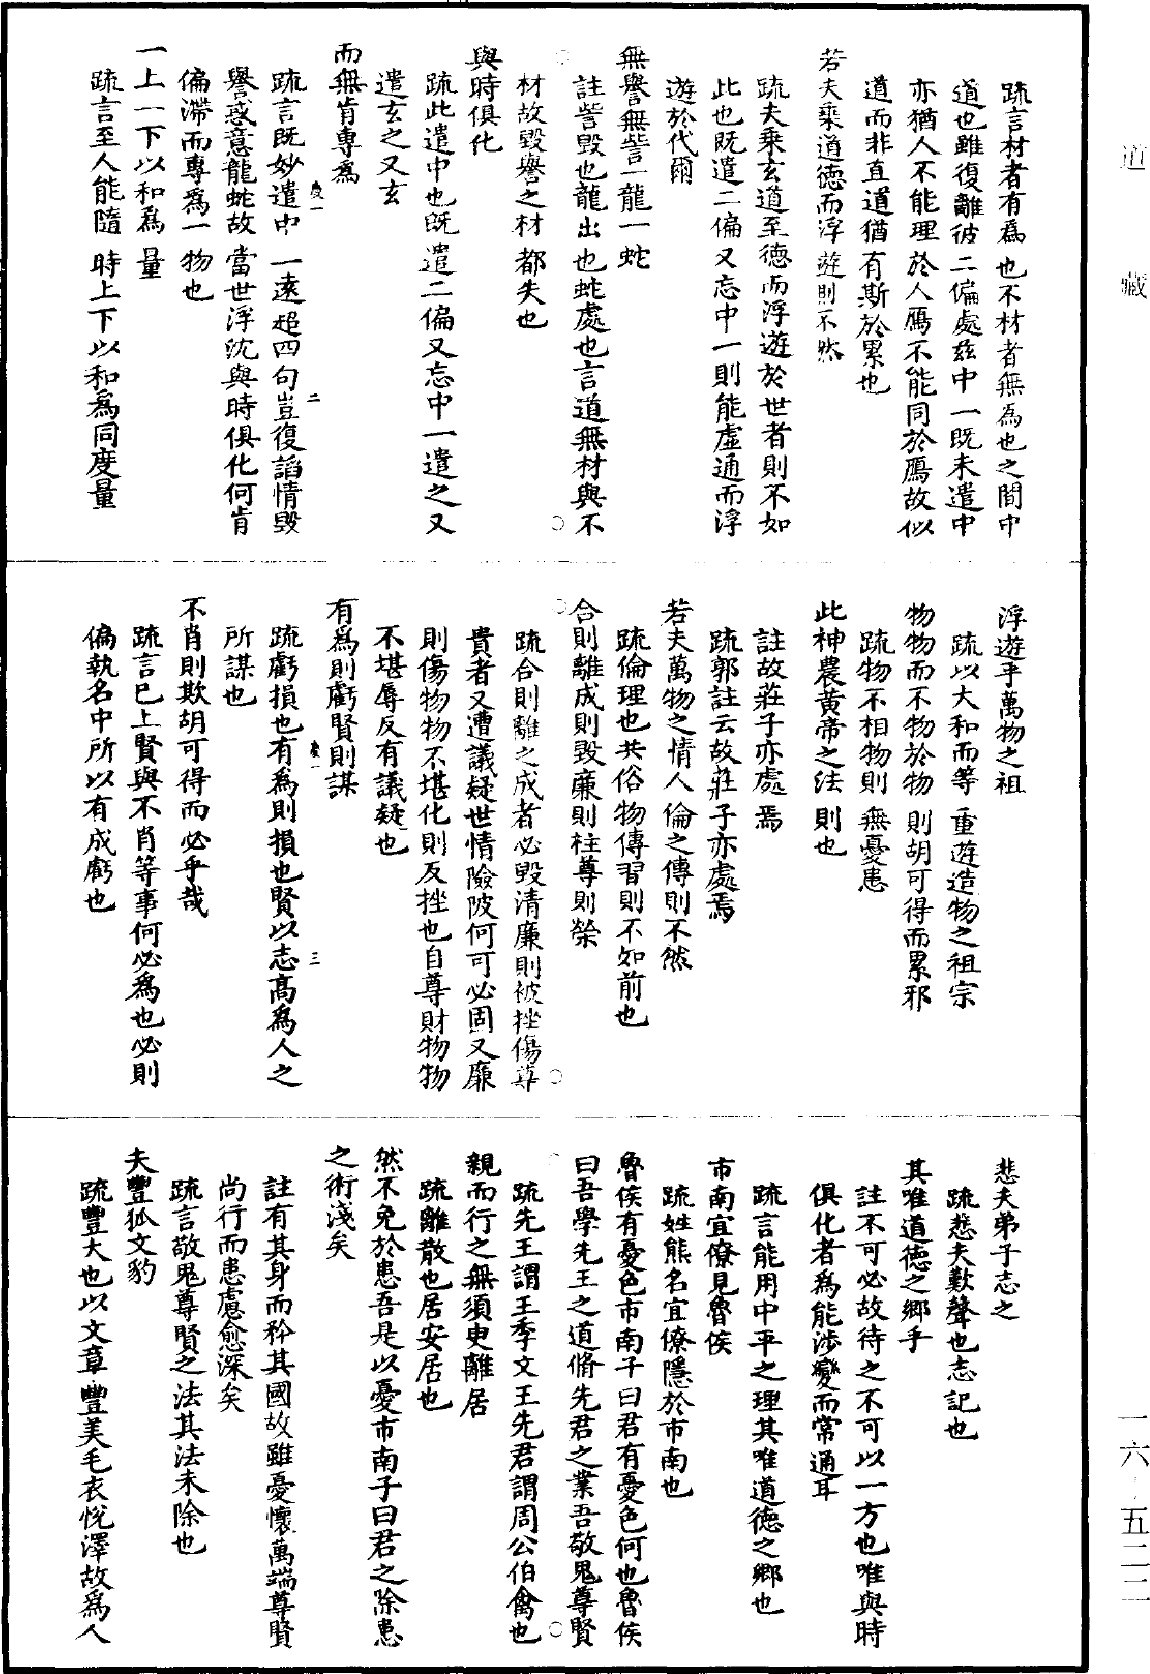 道藏
一六·五二二
疏言材者有為也不材者無為也之間中
道也雖復離彼二偏處茲中一既未遣中
亦猶人不能理於人鴈不能同於鴈故似
道而非直道猶有斯於累也
若夫乘道德而浮遊則不然
疏夫乘玄道至德而浮遊於世者則不如
此也既遣二偏又忘中一則能虛通而浮
遊於代爾
無譽無訾一龍一蛇
註訾毀也龍出也蛇處也言道無材與不
材故毀譽之材都失也
與時俱化
疏此遣中也既遣二偏又忘中一遣之又
遣玄之又玄
而無肯專為
疏言既妙遣中一遠超四句豈復諂情毀
譽惑意龍蛇故當世浮沈與時俱化何肯
偏滯而專為一物也
一上一下以和為量
疏言至人能隨時上下以和為同度量
浮遊乎萬物之祖
疏以大和而等重遊造物之祖宗
物物而不物於物則胡可得而累邪
疏物不相物則無憂患
此神農黃帝之法則也
註故莊子亦處焉
疏郭註云故莊子亦處焉
若夫萬物之情人倫之傳則不然
疏倫理也共俗物傳習則不如前也
合則離成則毀廉則挫尊則榮
疏合則離之成者必毀清廉則被挫傷尊
貴者又遭議疑世情險陂何可必固又廉
則傷物物不堪化則反挫也自尊財物物
不堪辱反有議疑也
有為則虧賢則謀
疏虧損也有為則損也賢以志高為人之
所謀也
不肖則欺胡可得而必乎哉
疏言已上賢與不肖等事何必為也必則
偏執名中所以有成虧也
悲夫弟子志之
疏悲夫歎聲也志記也
其唯道德之鄉乎
註不可必故待之不可以一方也唯與時
俱化者為能涉變而常通耳
疏言能用中平之理其唯道德之鄉也
市南宜僚見魯侯
疏姓熊名宜僚隱於市南也
魯侯有憂色市南子曰君有憂色何也魯侯
曰吾學先王之道脩先君之業吾敬鬼尊賢
疏先王謂王季文王先君謂周公伯禽也
親而行之無須臾離居
疏離散也居安居也
然不免於患吾是以憂市南子曰君之除患
之術淺矣
註有其身而矜其國故雖憂懷萬端尊賢
尚行而患慮愈深矣
疏言敬鬼尊賢之法其法未除也
夫豐狐文豹
疏豐大也以文章豐美毛衣悅澤故為人